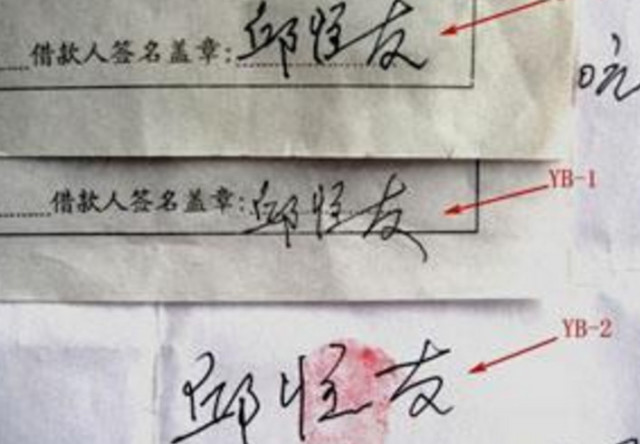 借款人签名盖章:邱恒友
元
借款人签名盖章:邱恒友
YB-1
YB-2
邱恒友